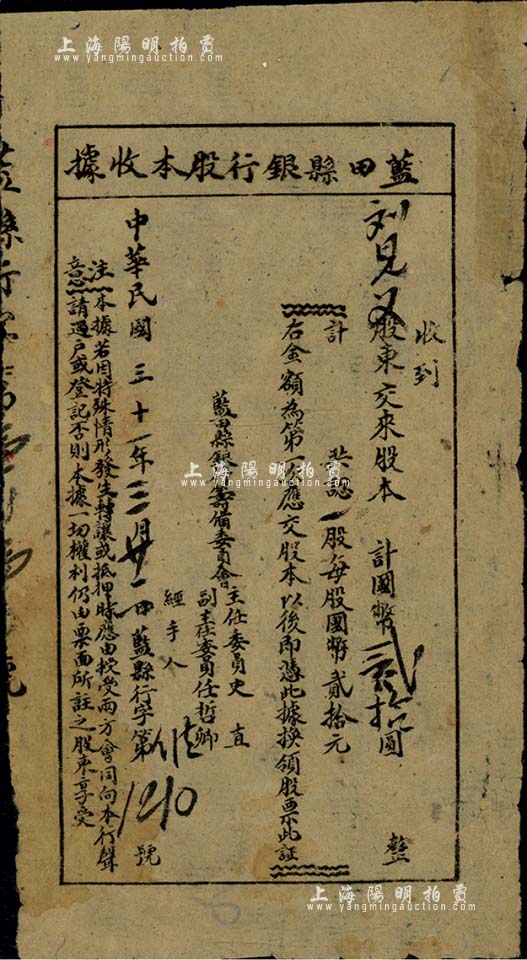 上海陽明拍賣
www.yangmingauction.com
藍田縣銀行股本收據
收到
刘見
股東交來股本 計國幣貳拾圓 整
計
共認一股每股國幣貳拾元
右金額為第一次應交股本以後即憑此據換領股票此証
藍田縣銀行籌備委員會主任委員史 直
副主任委員任哲卿
經手人
中華民國三十一年 月廿一日藍縣行字第 1210號
注意
本據若因特殊情形發生轉讓或抵押時應由授受兩方會同向本行聲
請過戶或登記否則本據一切權利仍由票面所註之股東享受
上海陽明拍賣
www.yangmingauction.com
上海陽明拍賣
www.yangmingauction.com